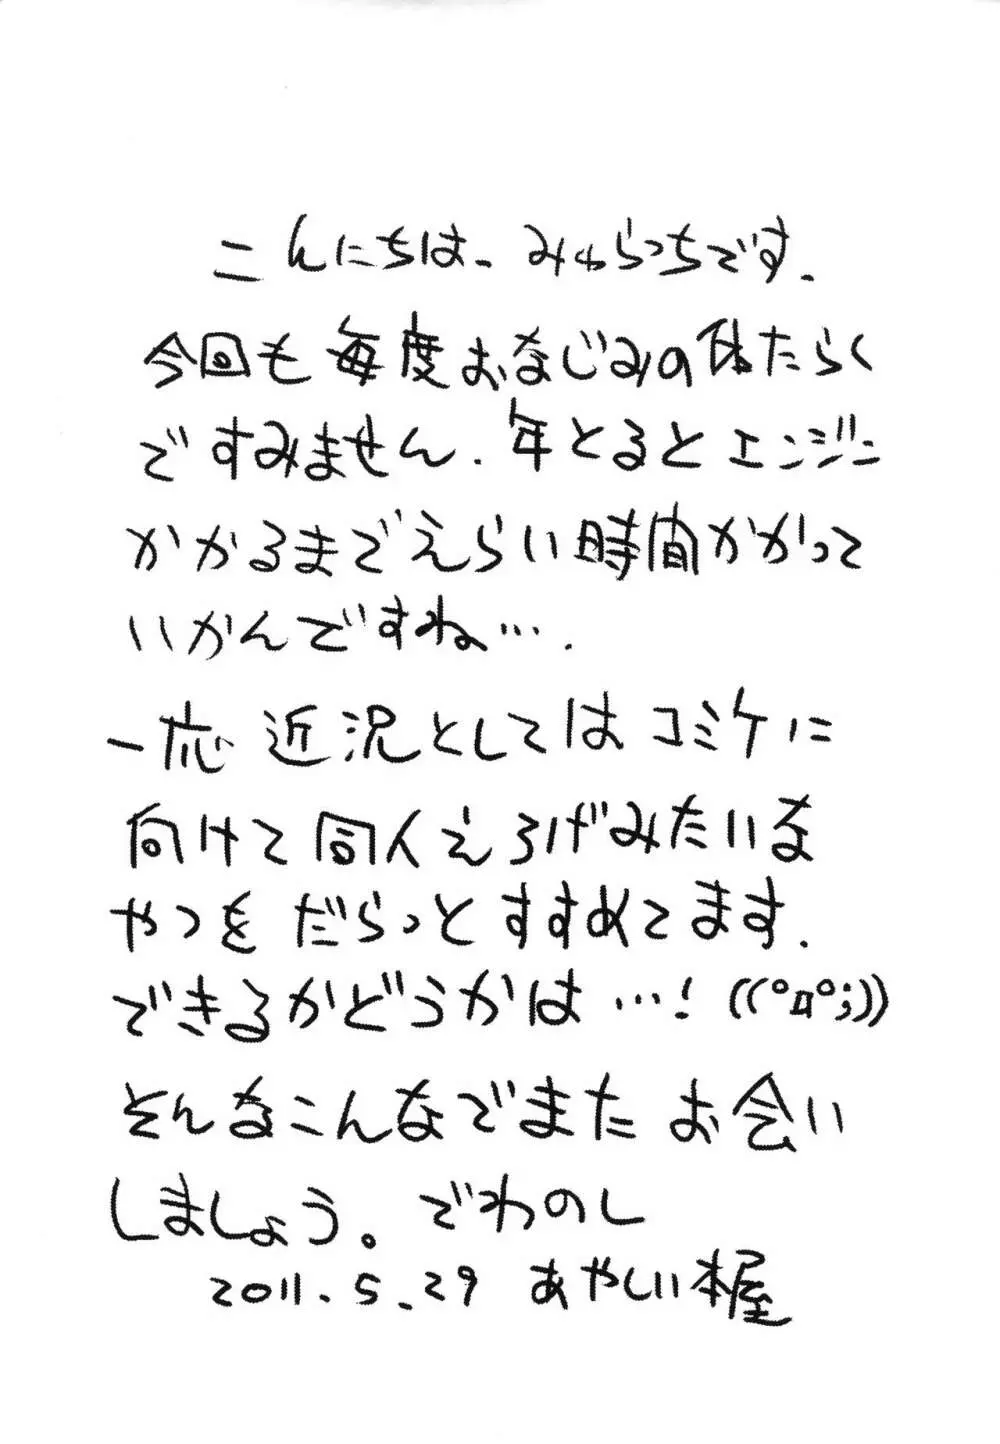 こんにちは、みゃらっちです.
今回も毎度おなじみの体たらく
ですみません. 年とるとエンジン
かかるまでえらい時間かかって
いかんですね….
一応近況としてはコミケに
向けて同人えろげみたいな
やつをだらっとすすめてます.
できるかどうかは…! ((°д°;))
そんなこんなでまたお会い
しましょう。でわのし
2011.5.29 あやしい本屋